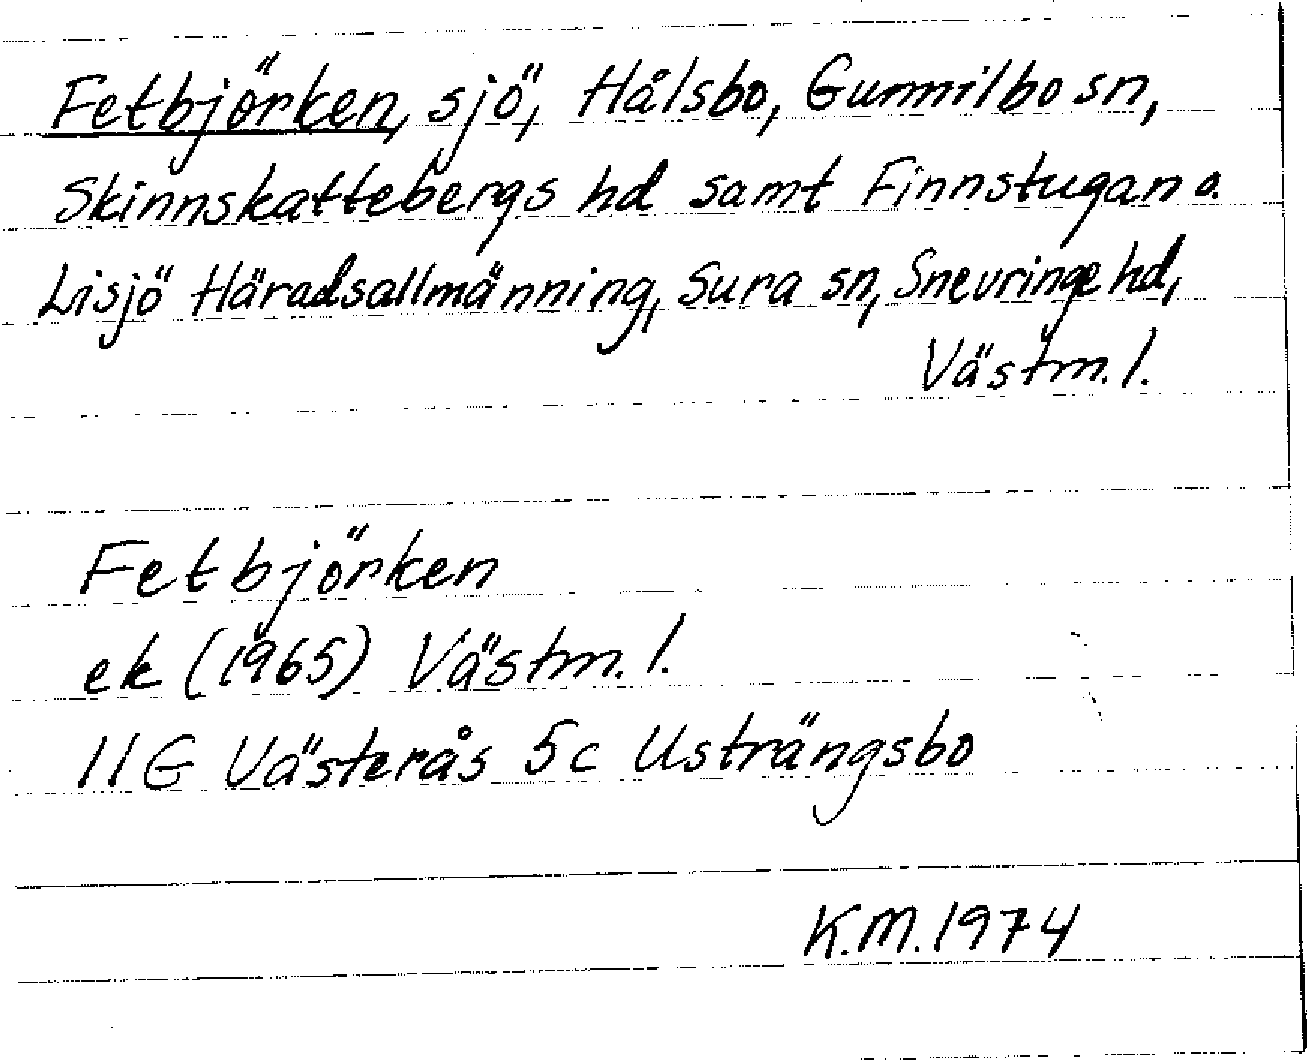 Fetbjörken, sjö, Hålsbo, Gunnilbo sn,
Skinnskattebergs hd samt Finnstugan o.
Lisjö Häradsallmänning, Sura sn, Snevringe hd,
Västm. l.
Fetbjörken
ek (1965) Västm. l.
11G Västerås 5c Usträngsbo
K.M. 1974